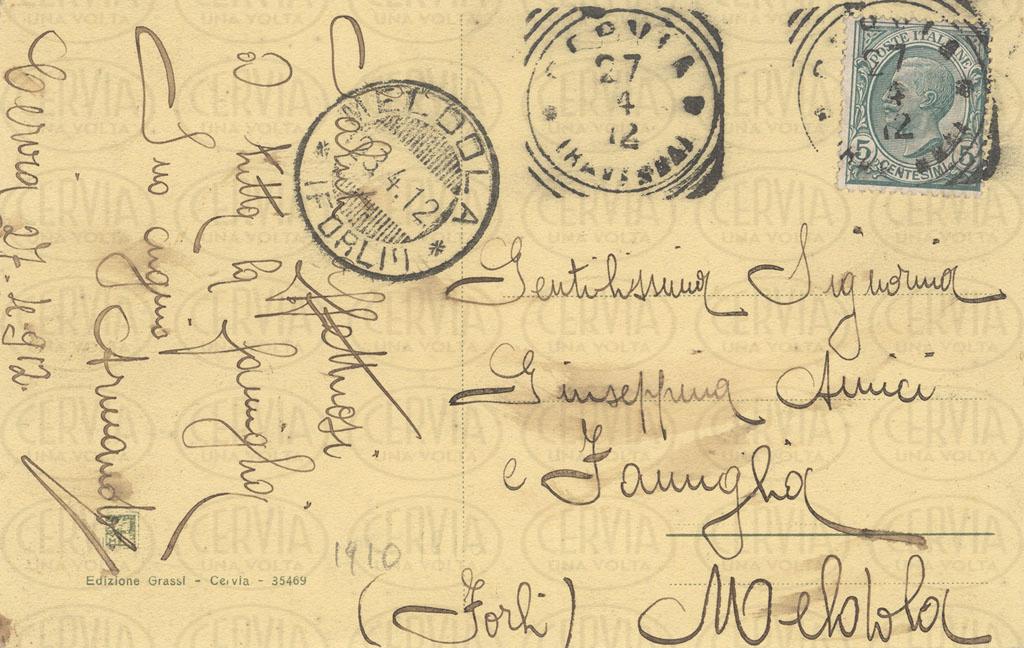 CERVIA
27
4
12
(RAVENNA)
POSTE ITALIANE
5 CENTESIMI 5
MELDOLA
23.4.12
(FORLI)
Gentilissima Signorina
Giuseppina Amici
e Famiglia
(Forlì) Meldola
Cervia 27-4-912.
Affettuosi
a tutta la famiglia
Suo cugino
Armando
1910
Edizione Grassi - Cervia - 35469
CERVIA
UNA VOLTA